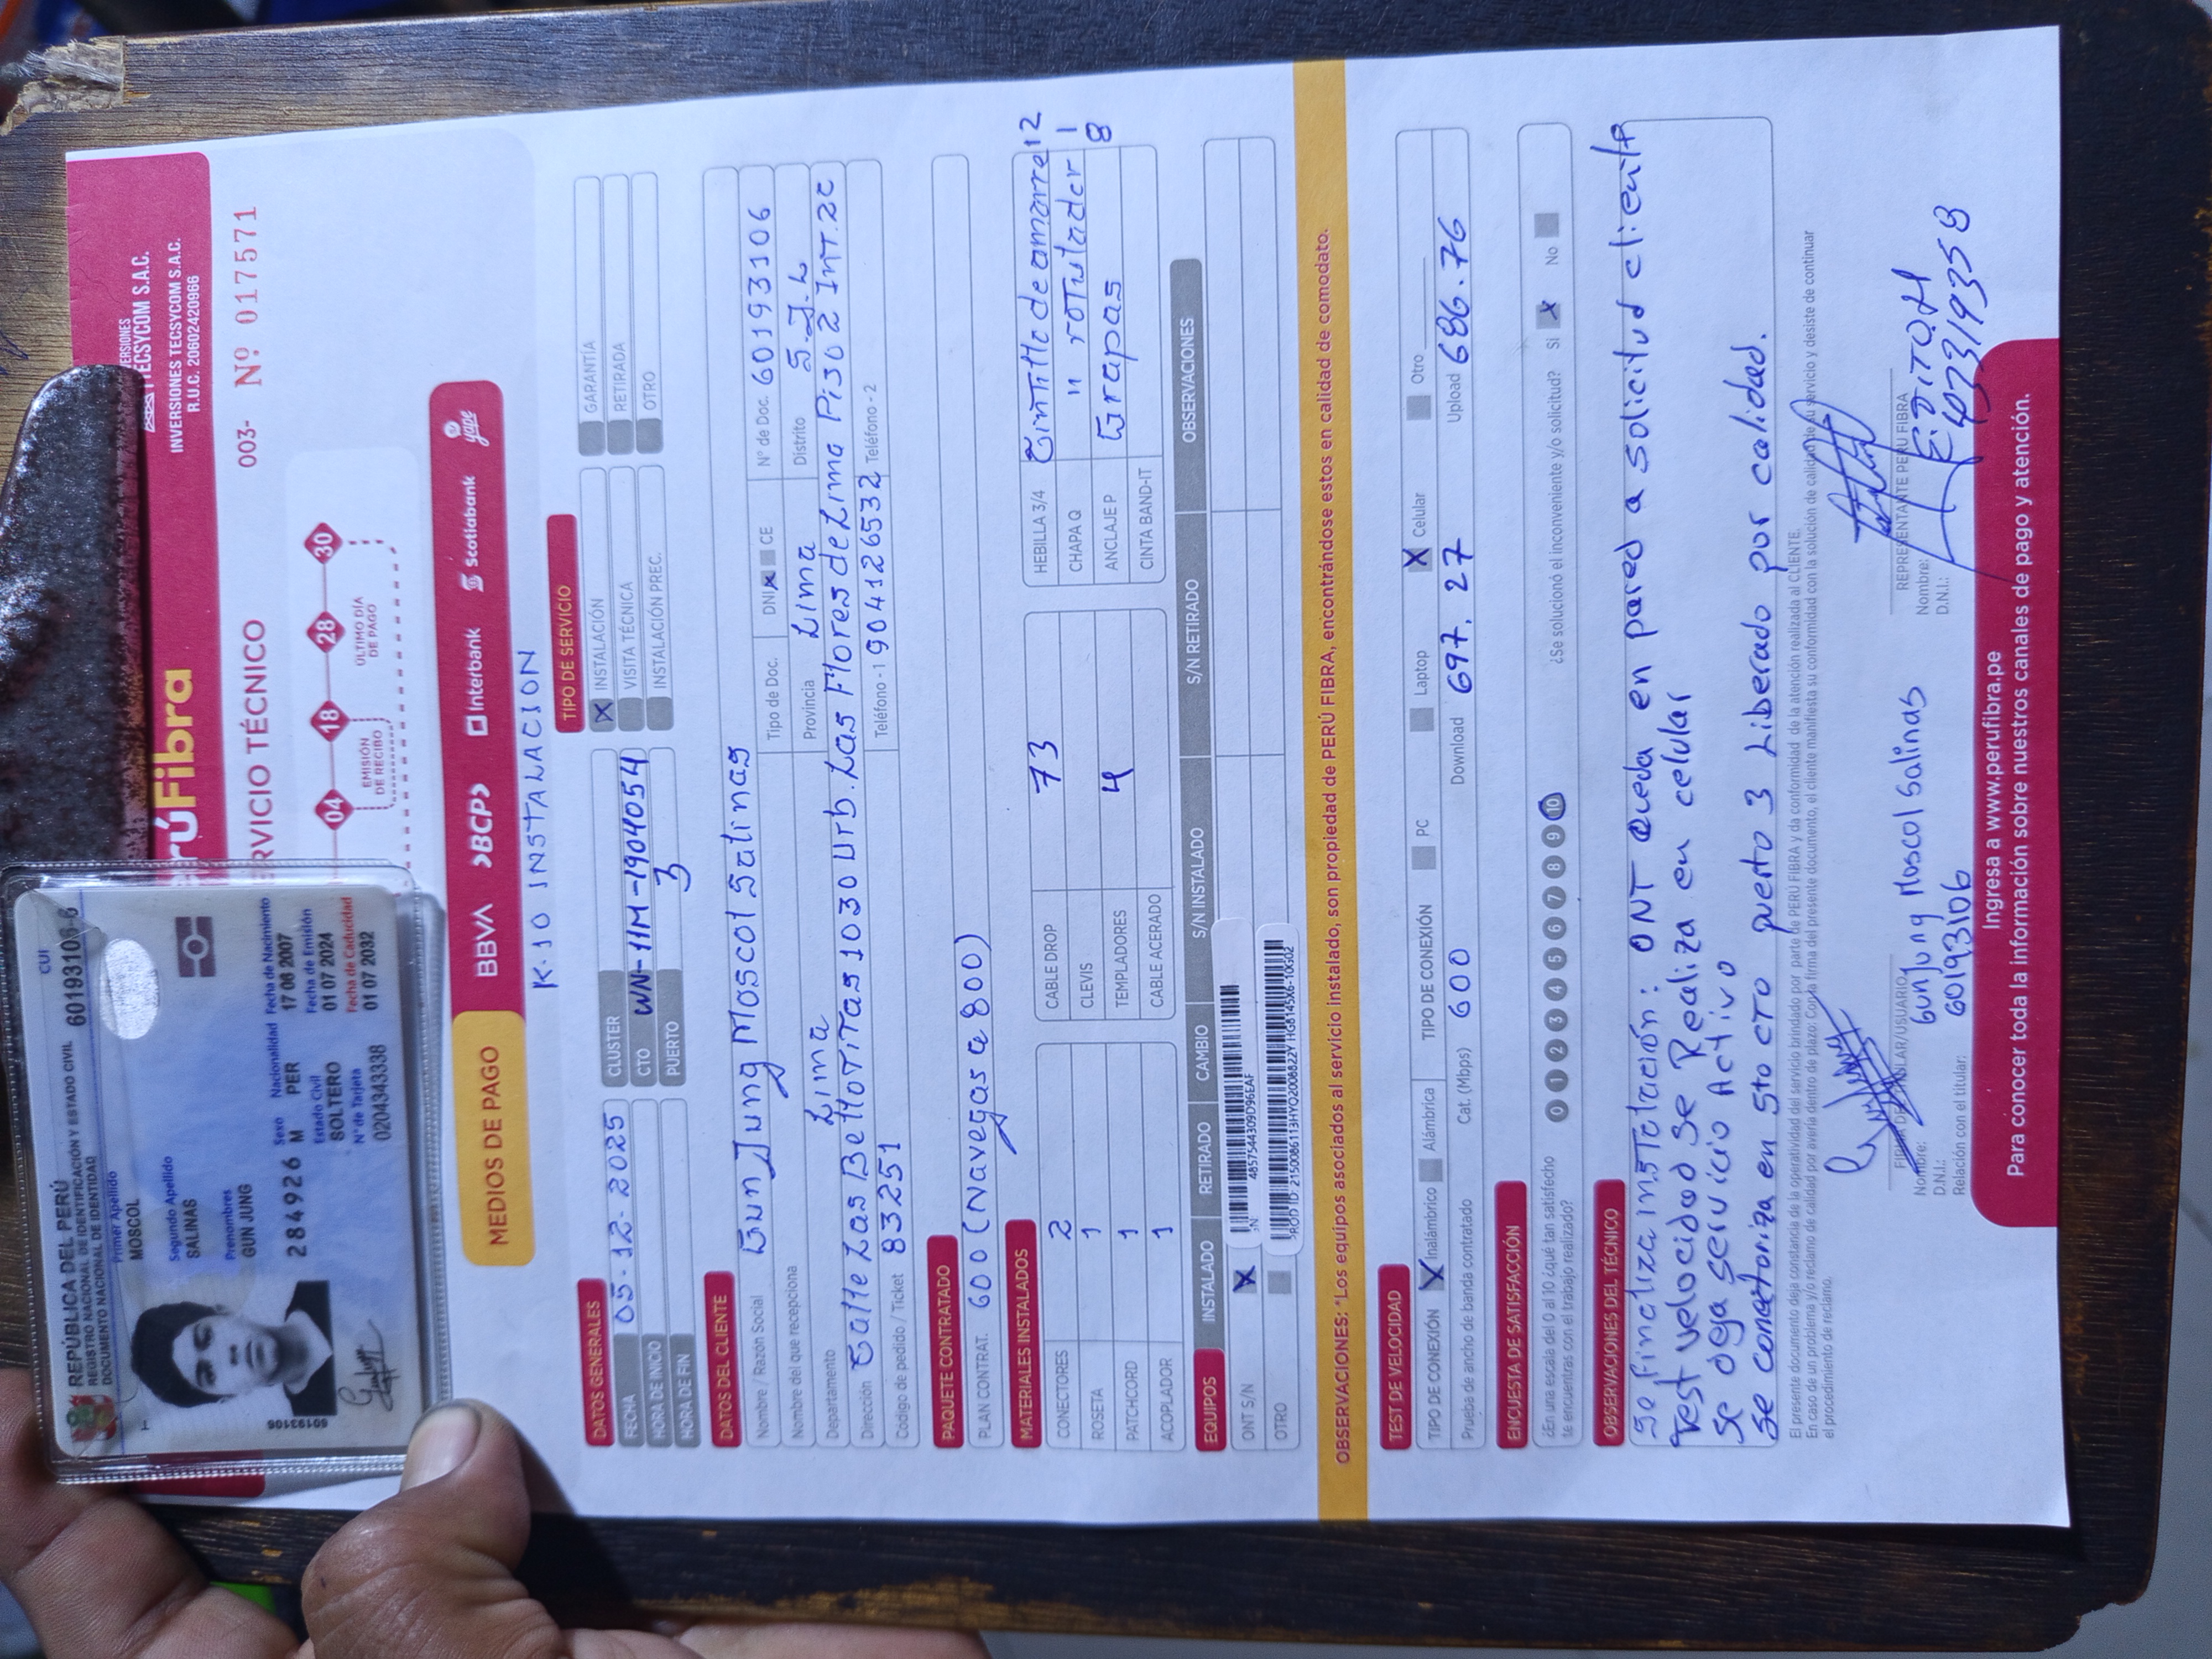 REPÚBLICA DEL PERÚ
REGISTRO NACIONAL DE IDENTIFICACIÓN Y ESTADO CIVIL
DOCUMENTO NACIONAL DE IDENTIDAD
CUI 60193106-6
Primer Apellido
MOSCOL
Segundo Apellido
SALINAS
Prenombres
GUN JUNG
284926
Sexo
M
Nacionalidad
PER
Fecha de Nacimiento
17 06 2007
Estado Civil
SOLTERO
Fecha de Emisión
01 07 2024
N° de Tarjeta
0204343338
Fecha de Caducidad
01 07 2032
60193106
rúFibra
TECSYCOM S.A.C.
INVERSIONES TECSYCOM S.A.C.
R.U.C. 20602420966
ERVICIO TÉCNICO
003- Nº 017571
04 18 28 30
EMISIÓN DE RECIBO
ÚLTIMO DÍA DE PAGO
MEDIOS DE PAGO
BBVA >BCP> Interbank scotiabank yape
K-10 INSTALACION
DATOS GENERALES
FECHA 05-12-2025
HORA DE INICIO
HORA DE FIN
CLUSTER
CTO WN-11M-1904054
PUERTO 3
TIPO DE SERVICIO
X INSTALACIÓN
VISITA TÉCNICA
INSTALACIÓN PREC.
GARANTÍA
RETIRADA
OTRO
DATOS DEL CLIENTE
Nombre / Razón Social Gun Jung Moscol Salinas
Nombre del que recepciona
Tipo de Doc. DNI X CE Nº de Doc. 60193106
Departamento Lima Provincia Lima Distrito S.J.L
Dirección Calle Las Bellotitas 1030 Urb. Las Flores de Lima Piso 2 Int. 2C
Código de pedido / Ticket 83251 Teléfono - 1 904126532 Teléfono - 2
PAQUETE CONTRATADO
PLAN CONTRAT. 600 (Navegas a 800)
MATERIALES INSTALADOS
CONECTORES 2
ROSETA 1
PATCHCORD 1
ACOPLADOR 1
CABLE DROP 73
CLEVIS
TEMPLADORES 4
CABLE ACERADO
HEBILLA 3/4 Cintillo de amarre 12
CHAPA Q " rotulador 1
ANCLAJE P Grapas 8
CINTA BAND-IT
EQUIPOS INSTALADO RETIRADO CAMBIO S/N INSTALADO S/N RETIRADO OBSERVACIONES
ONT S/N X
OTRO
4857544309D96EAF
OBSERVACIONES: "Los equipos asociados al servicio instalado, son propiedad de PERÚ FIBRA, encontrándose estos en calidad de comodato.
TEST DE VELOCIDAD
TIPO DE CONEXIÓN X Inalámbrico Alámbrica TIPO DE CONEXIÓN PC Laptop X Celular Otro
Prueba de ancho de banda contratado Cat. (Mbps) 600 Download 697.27 Upload 686.76
ENCUESTA DE SATISFACCIÓN
¿En una escala del 0 al 10 ¿qué tan satisfecho te encuentras con el trabajo realizado? 0 1 2 3 4 5 6 7 8 9 10 ¿Se solucionó el inconveniente y/o solicitud? Si X No
OBSERVACIONES DEL TÉCNICO
Se finaliza instalación: ONT queda en pared a solicitud cliente
Test velocidad se Realiza en celular
Se deja servicio Activo
Se conectoriza en 5to CTO puerto 3 Liberado por calidad.
El presente documento deja constancia de la operatividad del servicio brindado por parte de PERÚ FIBRA y da conformidad de la atención realizada al CLIENTE.
En caso de un problema y/o reclamo de calidad por avería dentro de plazo: Con la firma del presente documento, el cliente manifiesta su conformidad con la solución de calidad de su servicio y desiste de continuar
el procedimiento de reclamo.
FIRMA DEL TITULAR/USUARIO
Nombre: Gunjung Moscol Salinas
D.N.I.: 60193106
Relación con el titular:
REPRESENTANTE PERÚ FIBRA
Nombre:
D.N.I.:
Ingresa a www.perufibra.pe
Para conocer toda la información sobre nuestros canales de pago y atención.